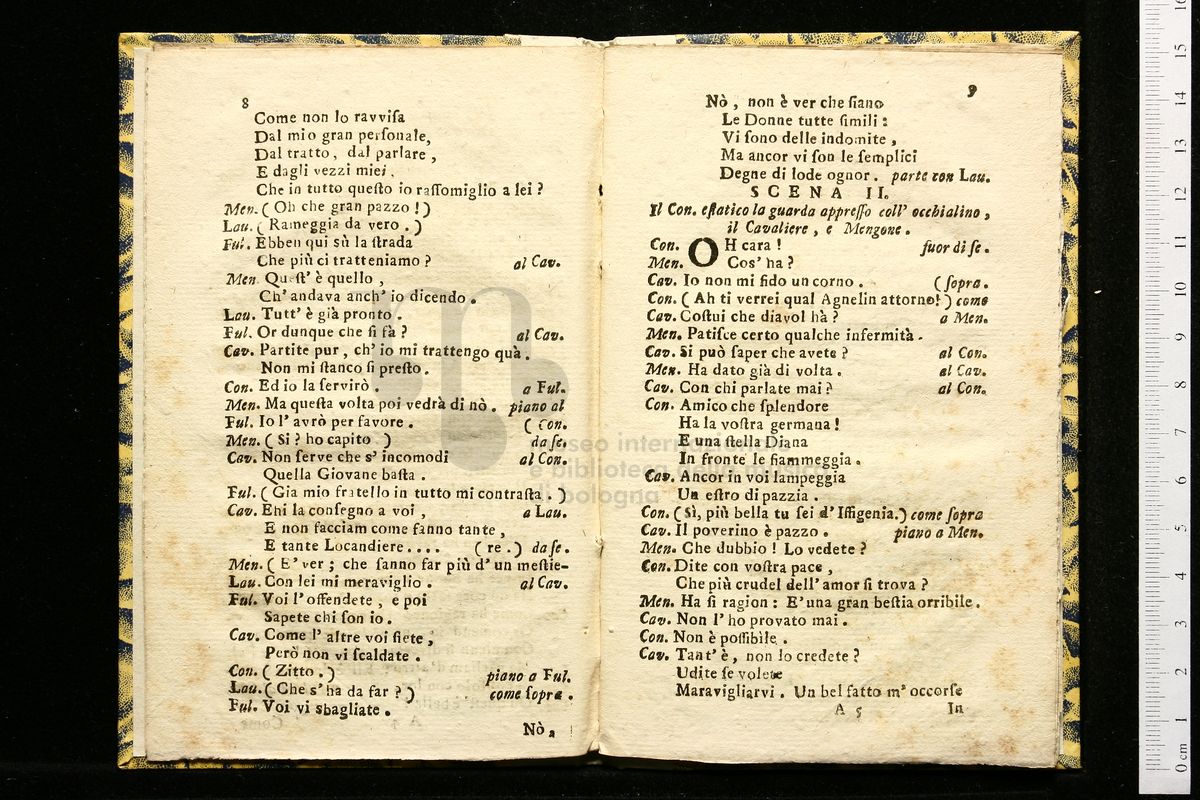 8
Come non lo ravviſa
Dal mio gran perſonale,
Dal tratto, dal parlare,
E dagli vezzi miei,
Che in tutto queſto io raſſomiglio a lei?
Men. (Oh che gran pazzo!)
Lau. (Rameggia da vero.)
Ful. Ebben qui sù la ſtrada
Che più ci tratteniamo? al Cav.
Men. Queſt' è quello,
Ch' andava anch' io dicendo.
Lau. Tutt' è già pronto.
Ful. Or dunque che ſi fà? al Cav.
Cav. Partite pur, ch' io mi trattengo quà.
Non mi ſtanco ſi preſto.
Con. Ed io la ſervirò. a Ful.
Men. Ma queſta volta poi vedrà di nò. piano al
Ful. Io l' avrò per favore. (Con.
Men. (Si? ho capito) da ſe.
Cav. Non ſerve che s' incomodi al Con.
Quella Giovane baſta.
Ful. (Gia mio fratello in tutto mi contraſta.)
Cav. Ehi la conſegno a voi, a Lau.
E non facciam come fanno tante,
E tante Locandiere.... (re.) da ſe.
Men. (E' ver; che fanno far più d' un meſtie-
Lau. Con lei mi meraviglio. al Cav.
Ful. Voi l' offendete, e poi
Sapete chi ſon io.
Cav. Come l' altre voi ſiete,
Però non vi ſcaldate.
Con. (Zitto.) piano a Ful.
Lau. (Che s' ha da far?) come ſopra.
Ful. Voi vi sbagliate.
Nò,
9
Nò, non è ver che ſiano
Le Donne tutte ſimili:
Vi ſono delle indomite,
Ma ancor vi ſon le ſemplici
Degne di lode ognor. parte con Lau.
SCENA II.
Il Con. eſtatico la guarda appreſſo coll' occhialino,
il Cavaliere, e Mengone.
Con. OH cara! fuor di ſe.
Men. Cos' ha?
Cav. Io non mi fido un corno. (ſopra.
Con. (Ah ti verrei qual Agnelin attorno!) come
Cav. Coſtui che diavol hà? a Men.
Men. Patiſce certo qualche infermità.
Cav. Si può ſaper che avete? al Con.
Men. Ha dato già di volta. al Cav.
Cav. Con chi parlate mai? al Con.
Con. Amico che ſplendore
Ha la voſtra germana!
E una ſtella Diana
In fronte le fiammeggia.
Cav. Ancor in voi lampeggia
Un eſtro di pazzia.
Con. (Sì, più bella tu ſei d' Iffigenia.) come ſopra
Cav. Il poverino è pazzo. piano a Men.
Men. Che dubbio! Lo vedete?
Con. Dite con voſtra pace,
Che più crudel dell' amor ſi trova?
Men. Ha ſi ragion: E' una gran beſtia orribile.
Cav. Non l' ho provato mai.
Con. Non è poſſibile.
Cav. Tant' è, non lo credete?
Udite ſe volete
Maravigliarvi. Un bel fatto m' occorſe
A 5 In
museo internazionale
e biblioteca della musica
di bologna
0 cm 1 2 3 4 5 6 7 8 9 10 11 12 13 14 15 16